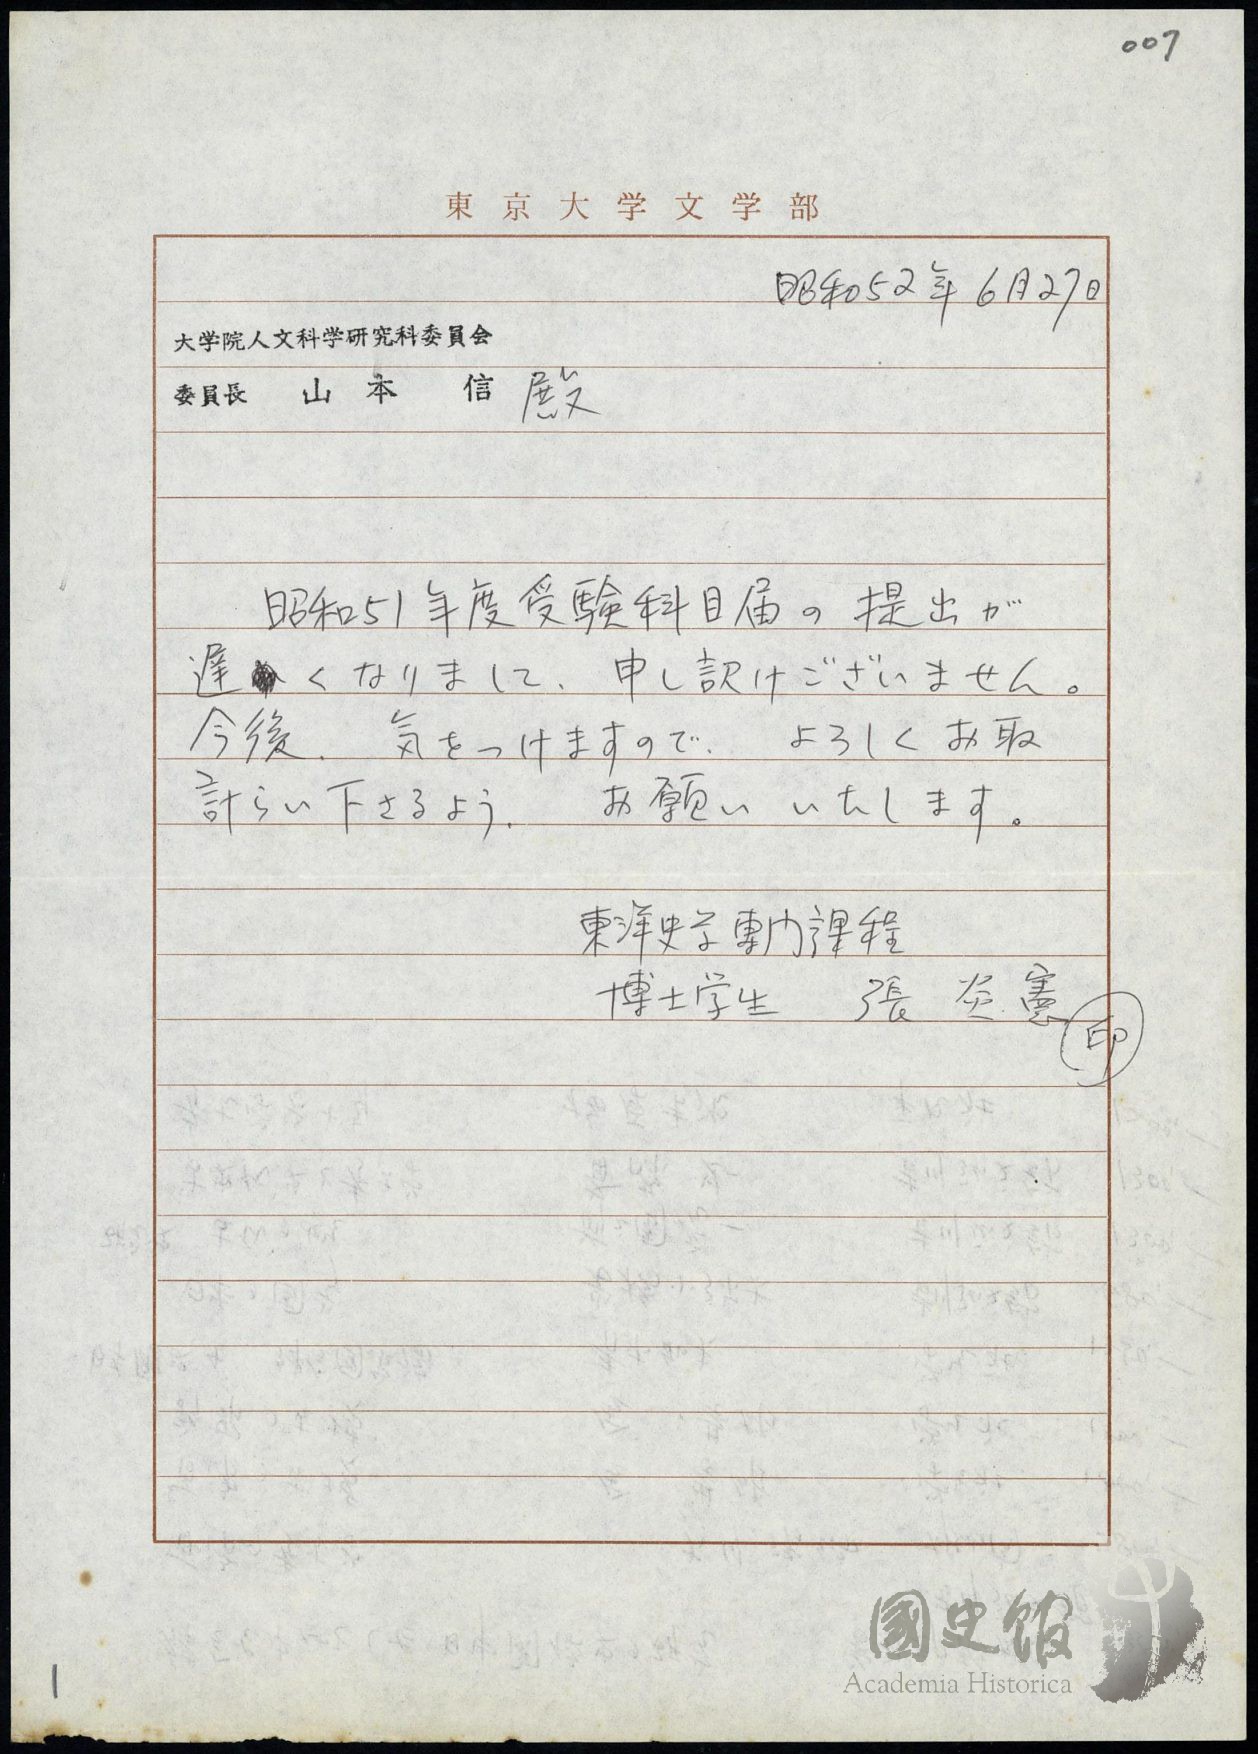 007
東京大学文学部
昭和52年6月27日
大学院人文科学研究科委員会
委員長 山本 信 殿
昭和51年度受験科目届の提出が
遅くなりまして、申し訳けございません。
今後、気をつけますので、よろしくお取
計らい下さるよう、お願いいたします。
東洋史学専門課程
博士学生 張炎憲
印
國史館
Academia Historica
1